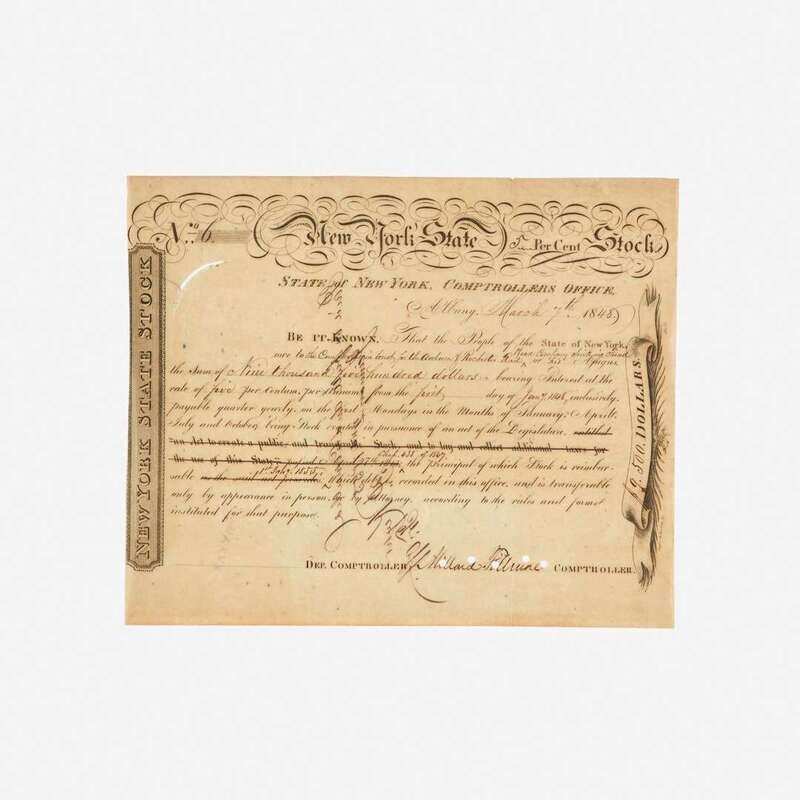 No. 6.
New York State 5 Per Cent Stock
NEW YORK STATE STOCK
STATE of NEW YORK, COMPTROLLERS OFFICE,
Albany, March 7th 1848.
BE IT KNOWN, That the People of the State of New York,
owe to the
the Sum of Nine thousand five hundred dollars bearing Interest at the
rate of five per Centum, per Annum from the first day of Jany 1848, inclusively,
payable quarter yearly, on the first Mondays in the Months of January, April,
July and October, being Stock created in pursuance of an act of the Legislature, entitled
an Act to create a public and transferable Stock, and to lay and collect additional taxes for
the use of this State Chap. 438 of 1847 the principal of which Stock is reimbur-
sable recorded in this office, and is transferable
only by appearance in person, or by Attorney, according to the rules and forms
instituted for that purpose.
DEP. COMPTROLLER, Millard Fillmore COMPTROLLER.
DOLLARS